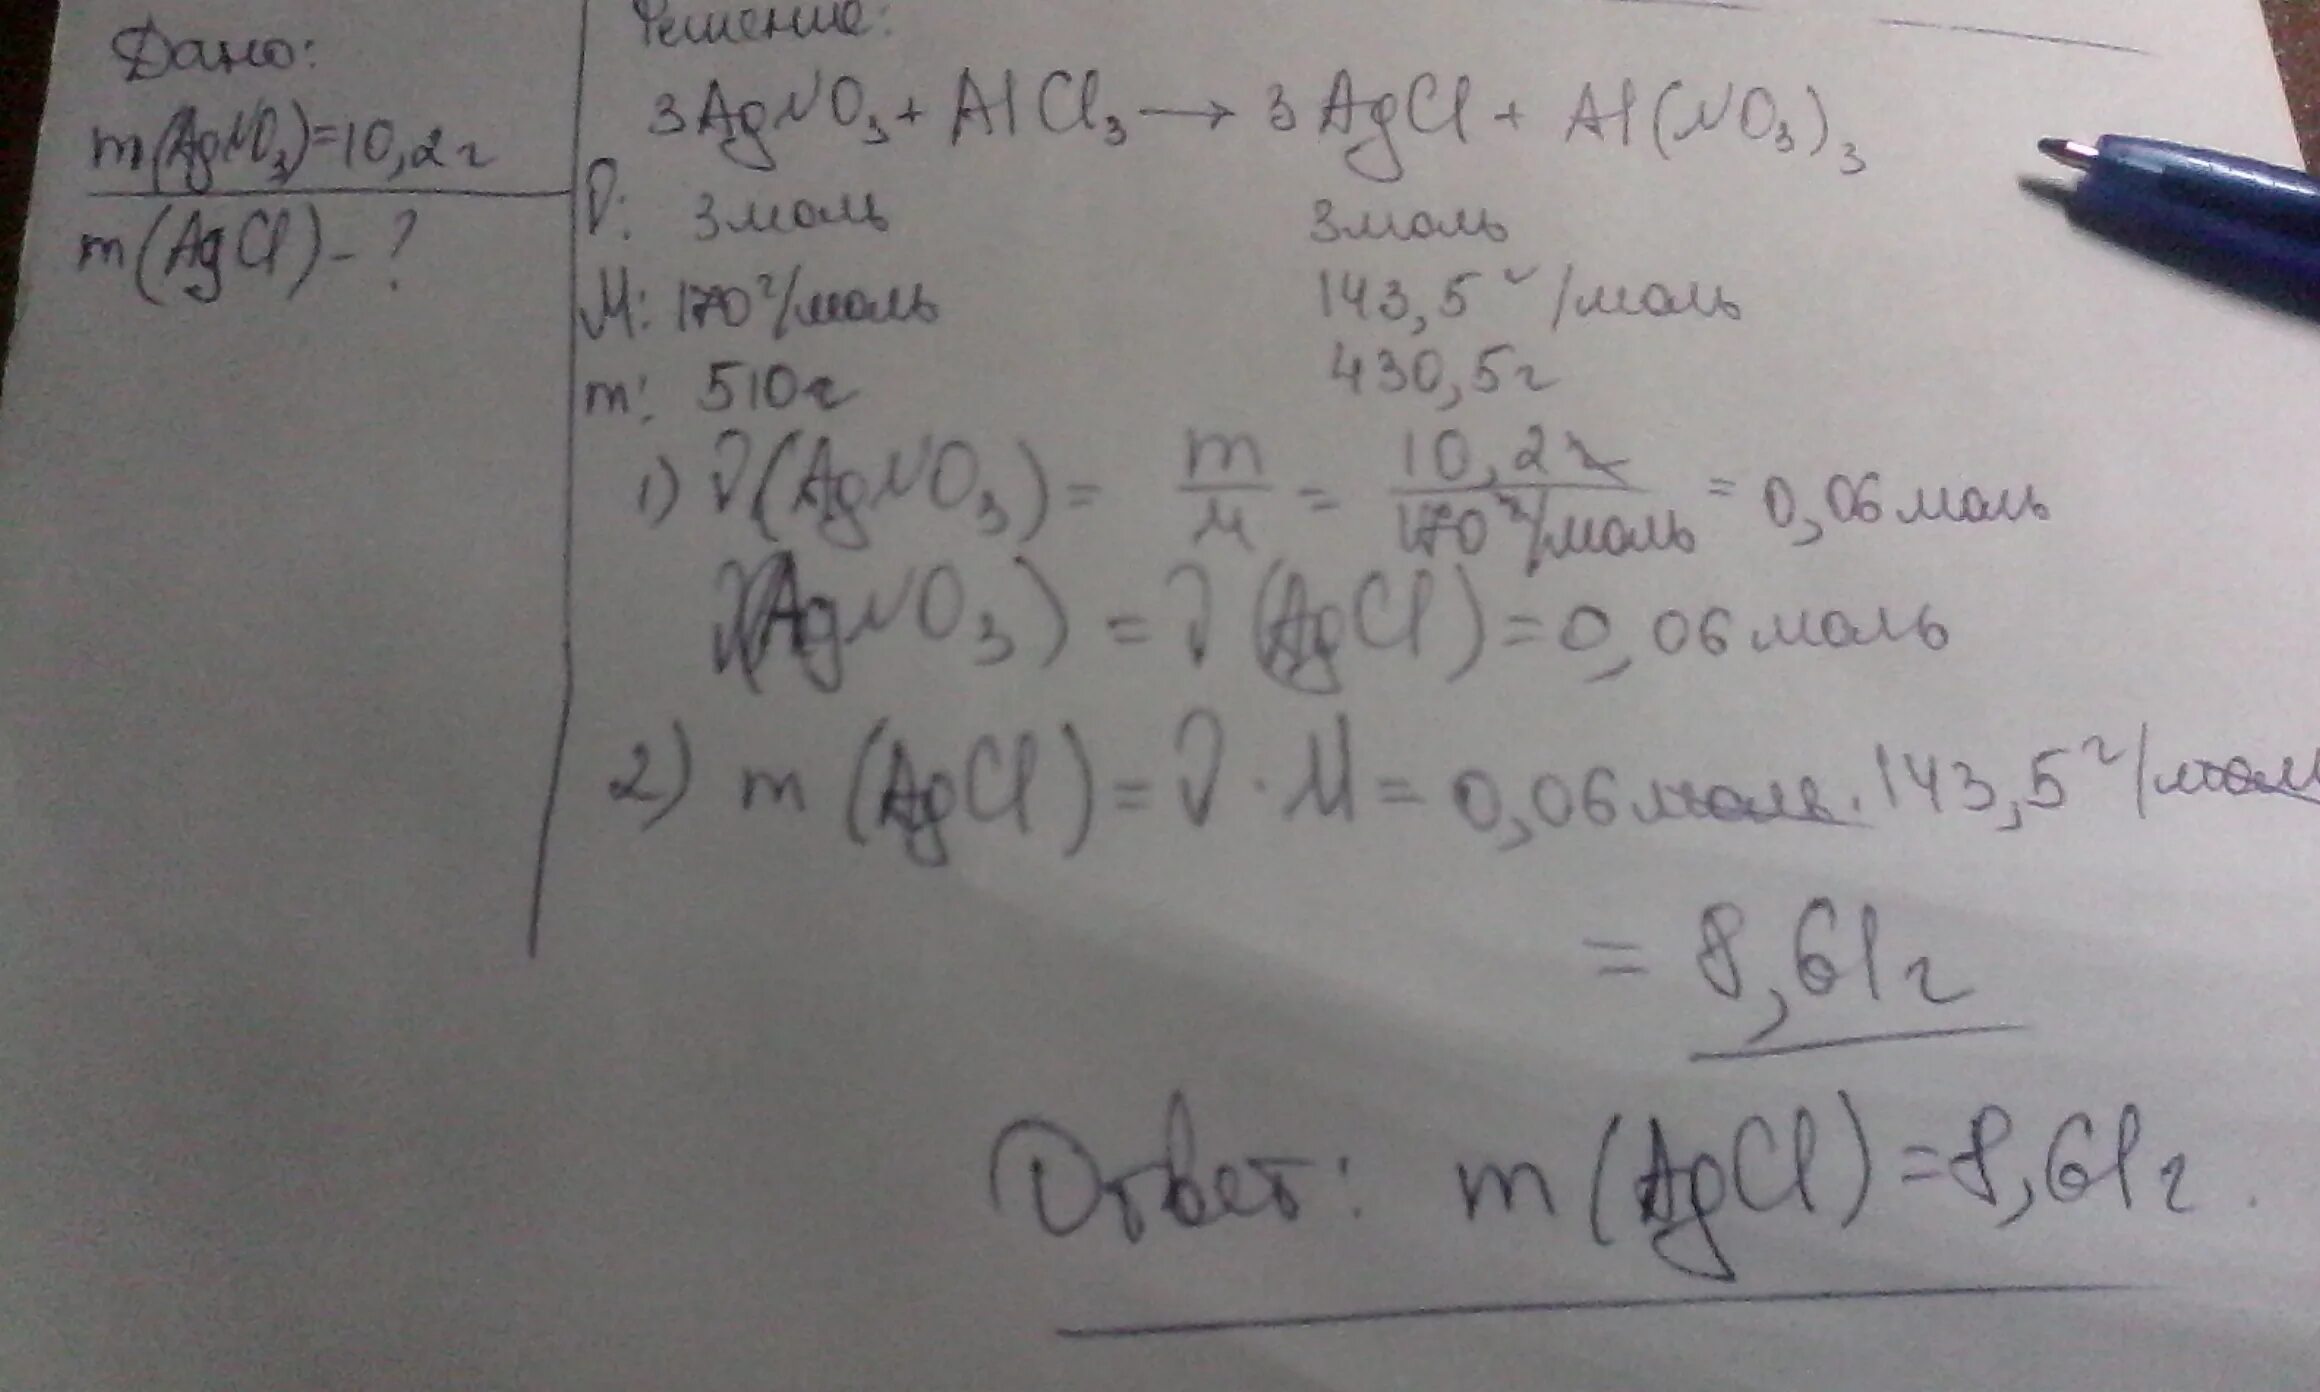 Дано:
m(AgNO₃)=10,2г
m(AgCl)-?
Решение:
3AgNO₃+AlCl₃→3AgCl+Al(NO₃)₃
ν: 3моль 3моль
M: 170 г/моль 143,5 г/моль
m: 510г 430,5г
1) ν(AgNO₃)= m/M = 10,2г/170 г/моль = 0,06моль
ν(AgNO₃)=ν(AgCl)=0,06моль
2) m(AgCl)=ν·M=0,06моль·143,5 г/моль
=8,61г
Ответ: m(AgCl)=8,61г.